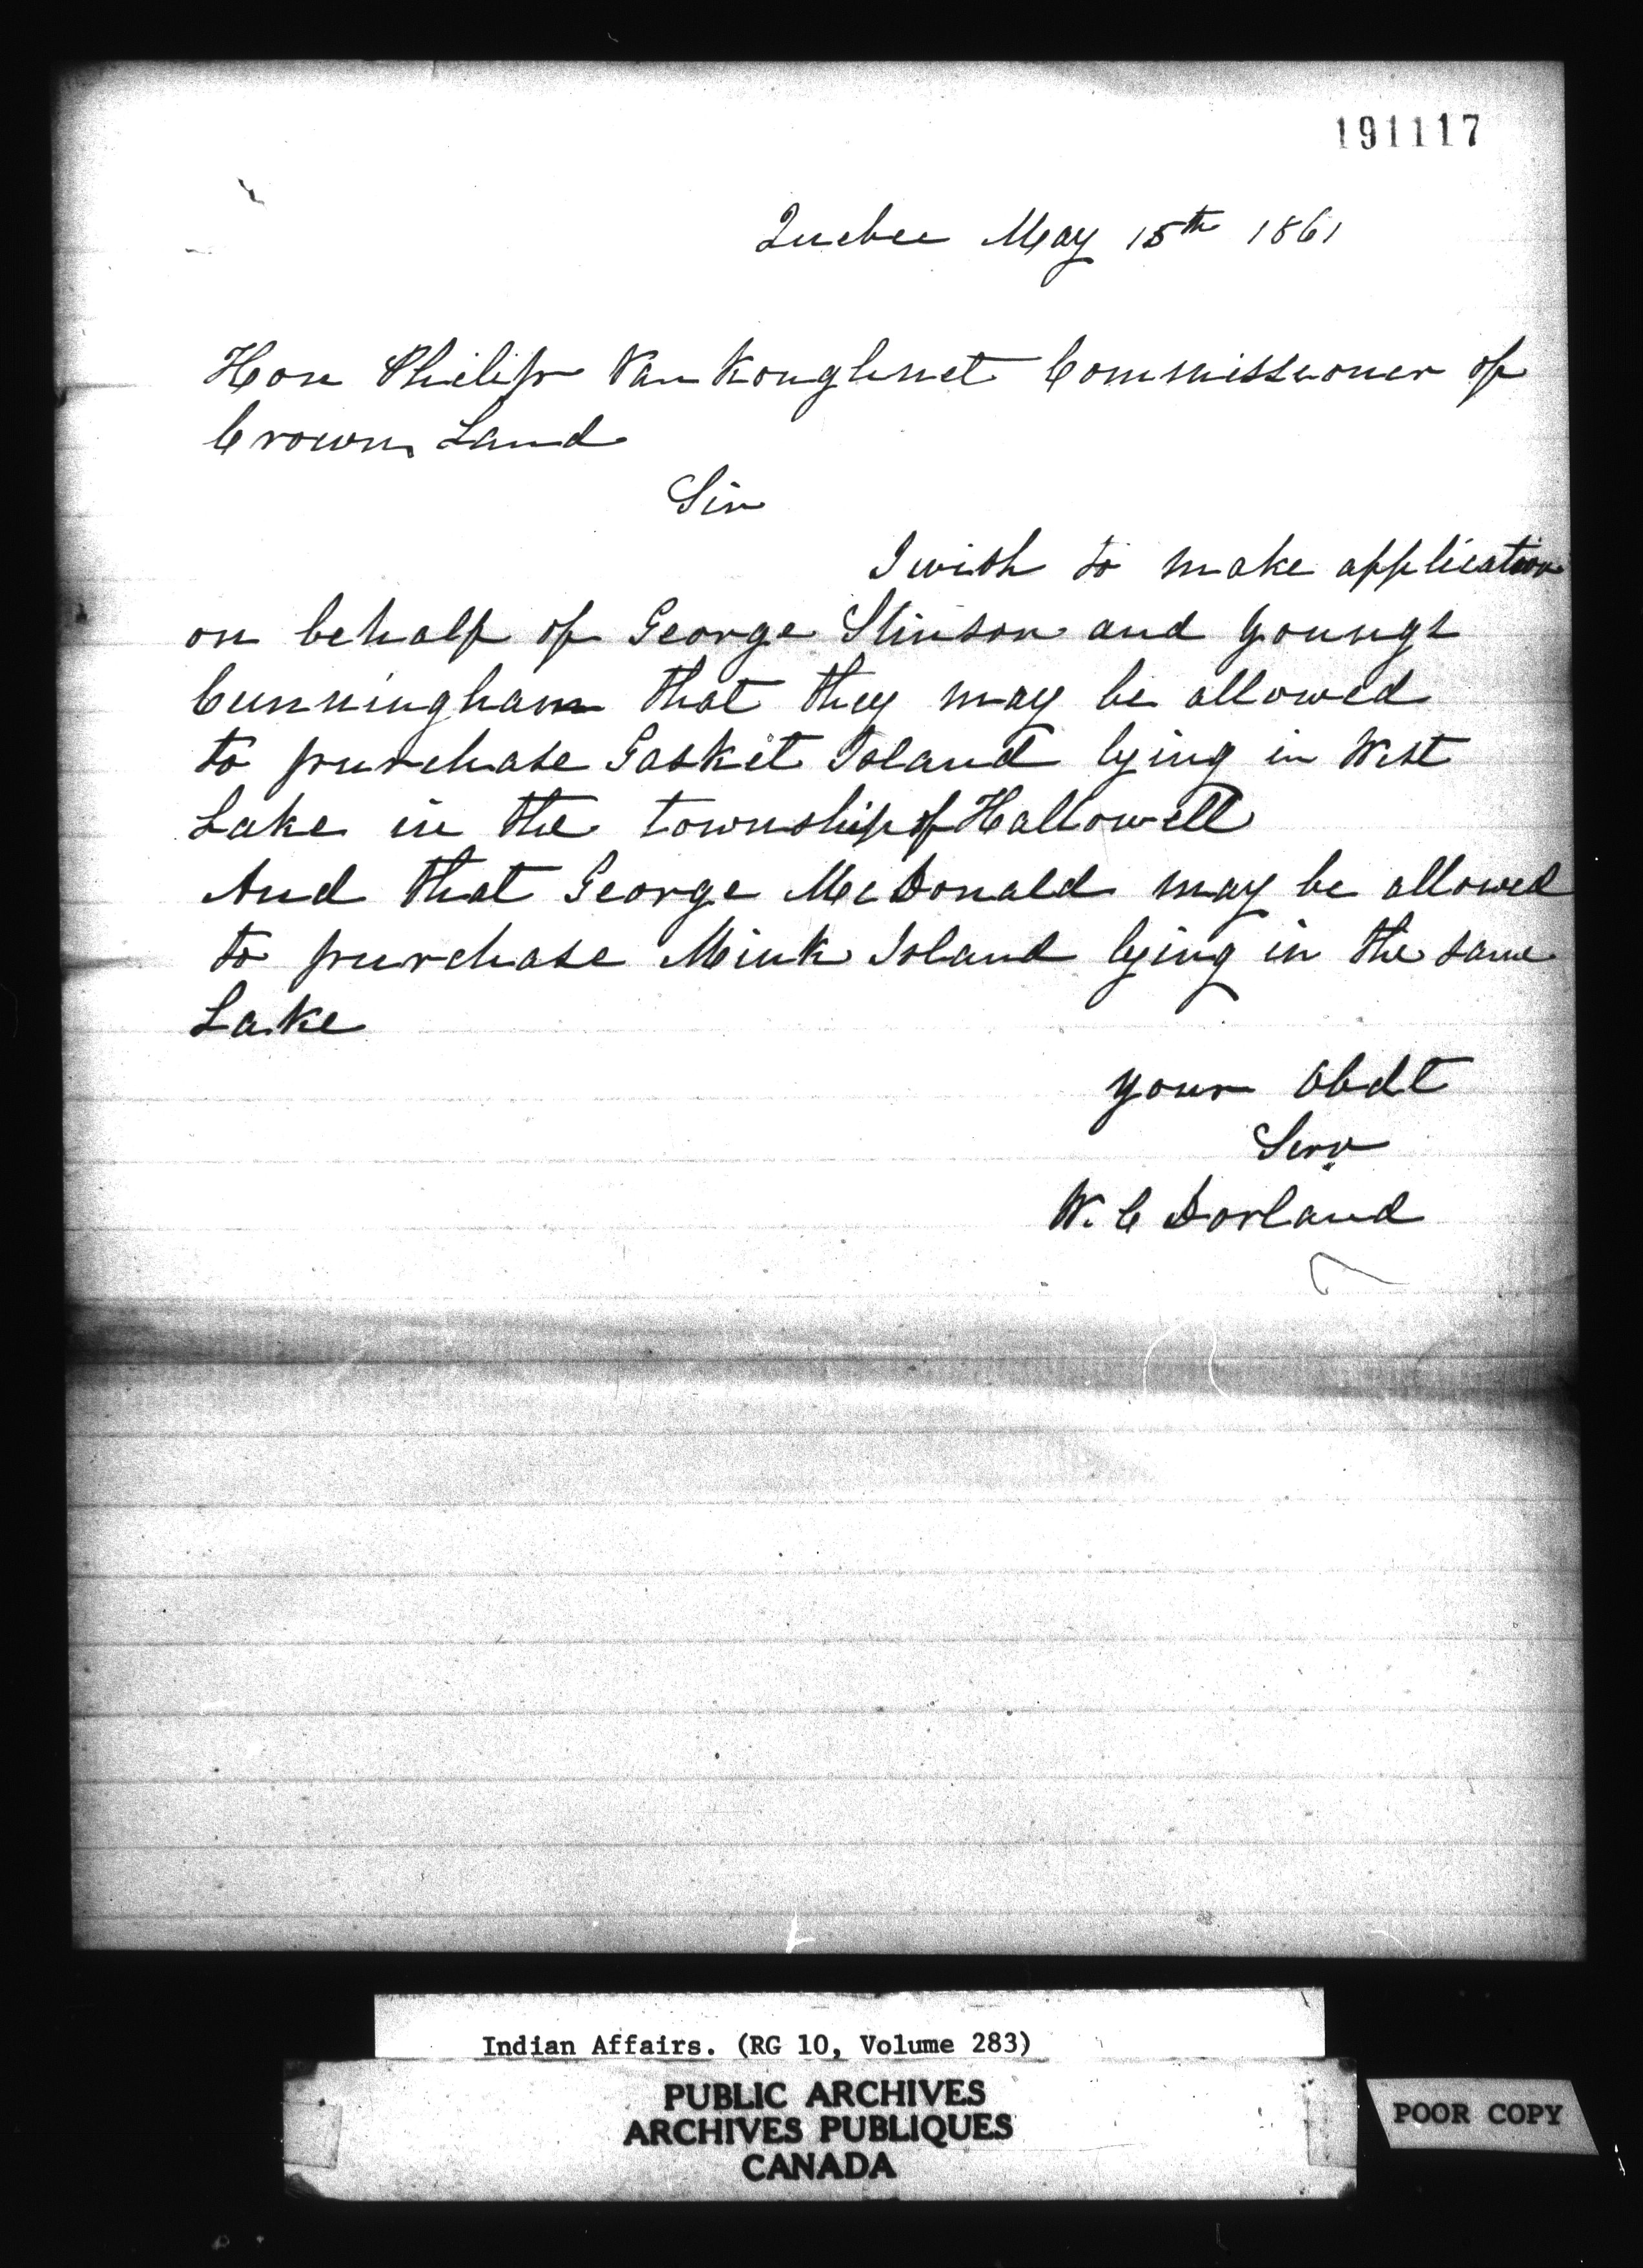 191117
Quebec May 15th 1861
Hon Philip VanKoughnet Commissioner of
Crown Land
Sir
I wish to make application
on behalf of George Stinson and Youngs
Cunningham that they may be allowed
to purchase Gasket Island lying in West
Lake in the township of Hallowell
And that George McDonald may be allowed
to purchase Mink Island lying in the same
Lake
your Obdt
Serv
W. C Dorland
Indian Affairs. (RG 10, Volume 283)
PUBLIC ARCHIVES
ARCHIVES PUBLIQUES
CANADA
POOR COPY